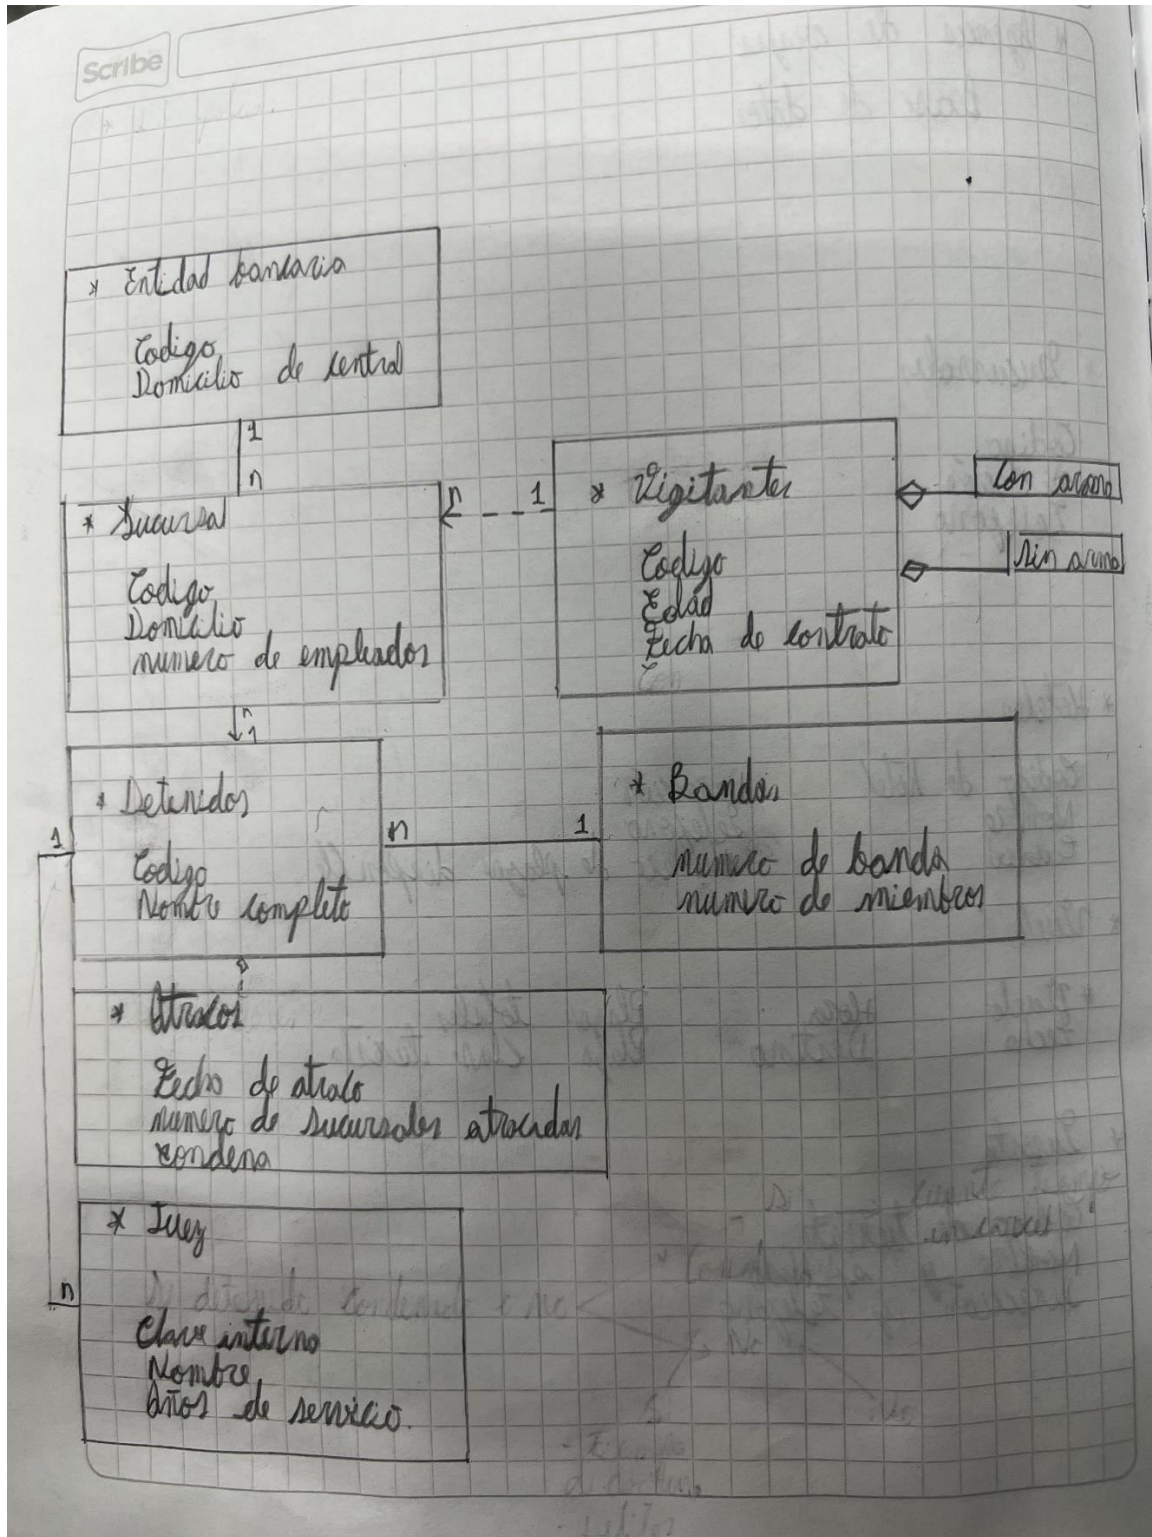 Scribe
* Entidad bancaria
Codigo
Domicilio de central
1
n
* Sucursal
Codigo
Domicilio
numero de empleados
n 1
* Vigitantes
Codigo
Edad
Fecha de contrato
Con
Con arma
Sin arma
n
1
* Detenidos
Codigo
Nombre completo
1
n 1
* Bandas
numero de banda
numero de miembros
* Atracos
Fecha de atraco
numero de sucursales atracadas
condena
* Juez
n
Clave interno
Nombre
Años de servicio.